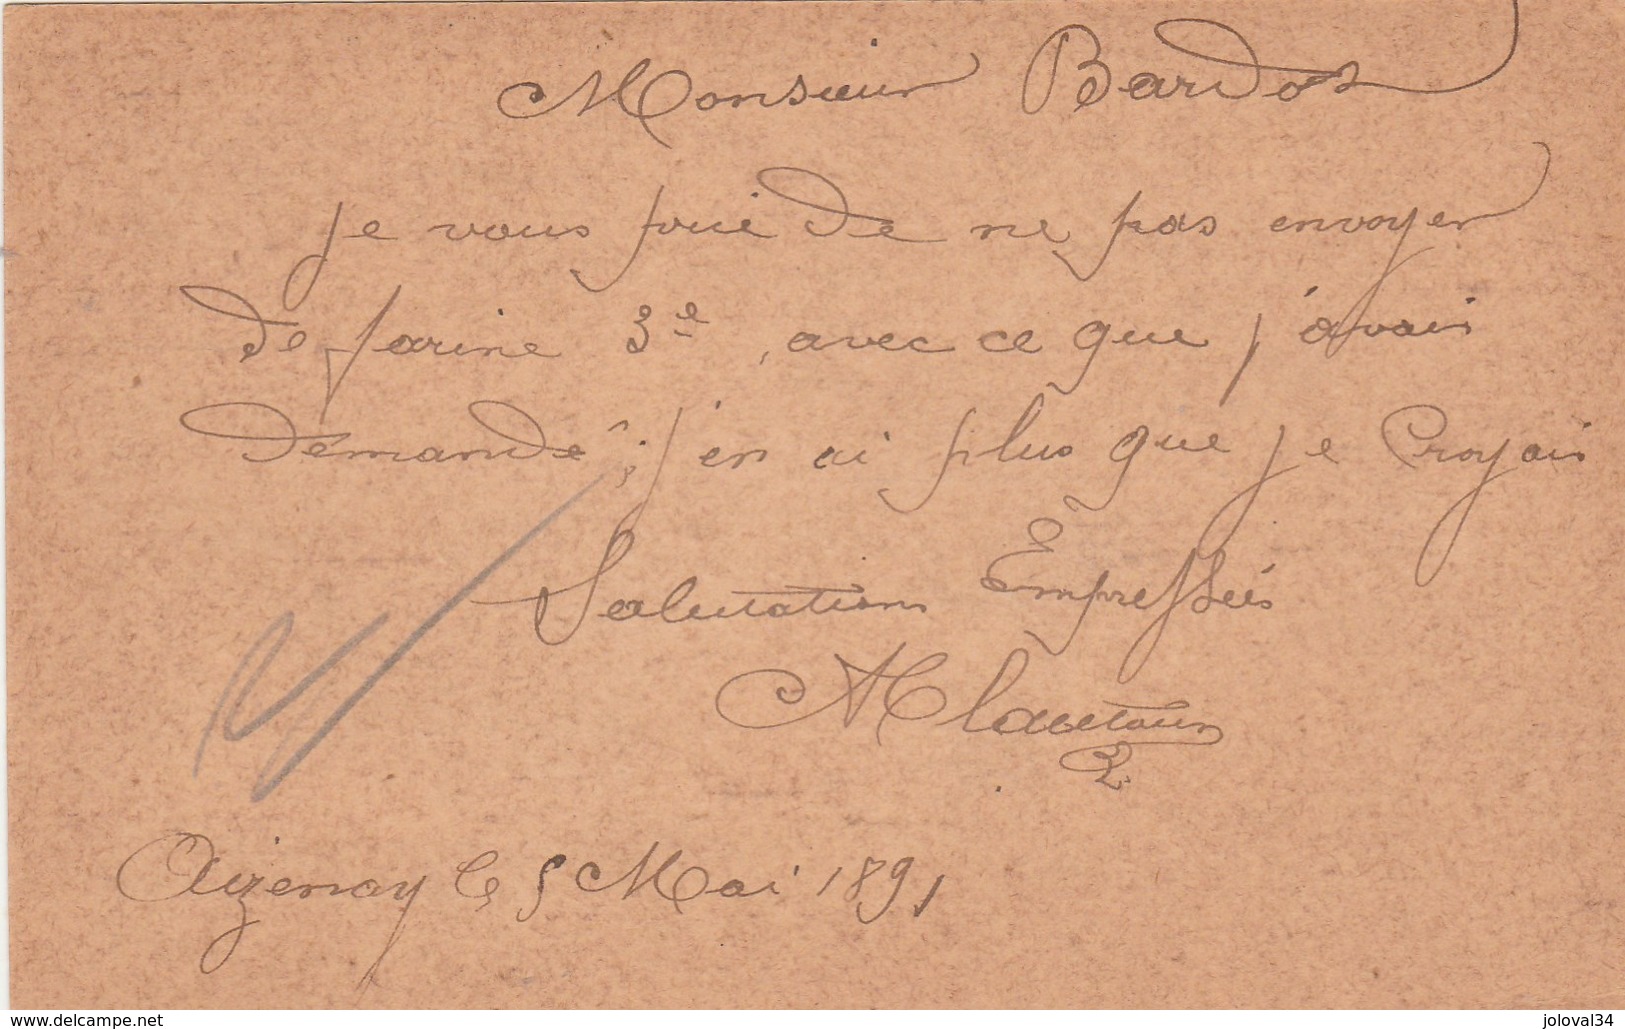 Monsieur Bardot
je vous prie de ne pas envoyer
de farine 3e, avec ce que j'avais
demandé, j'en ai plus que je Croyais
Salutations Empressées
Aizenay le 5 Mai 1891
www.delcampe.net
joloval34